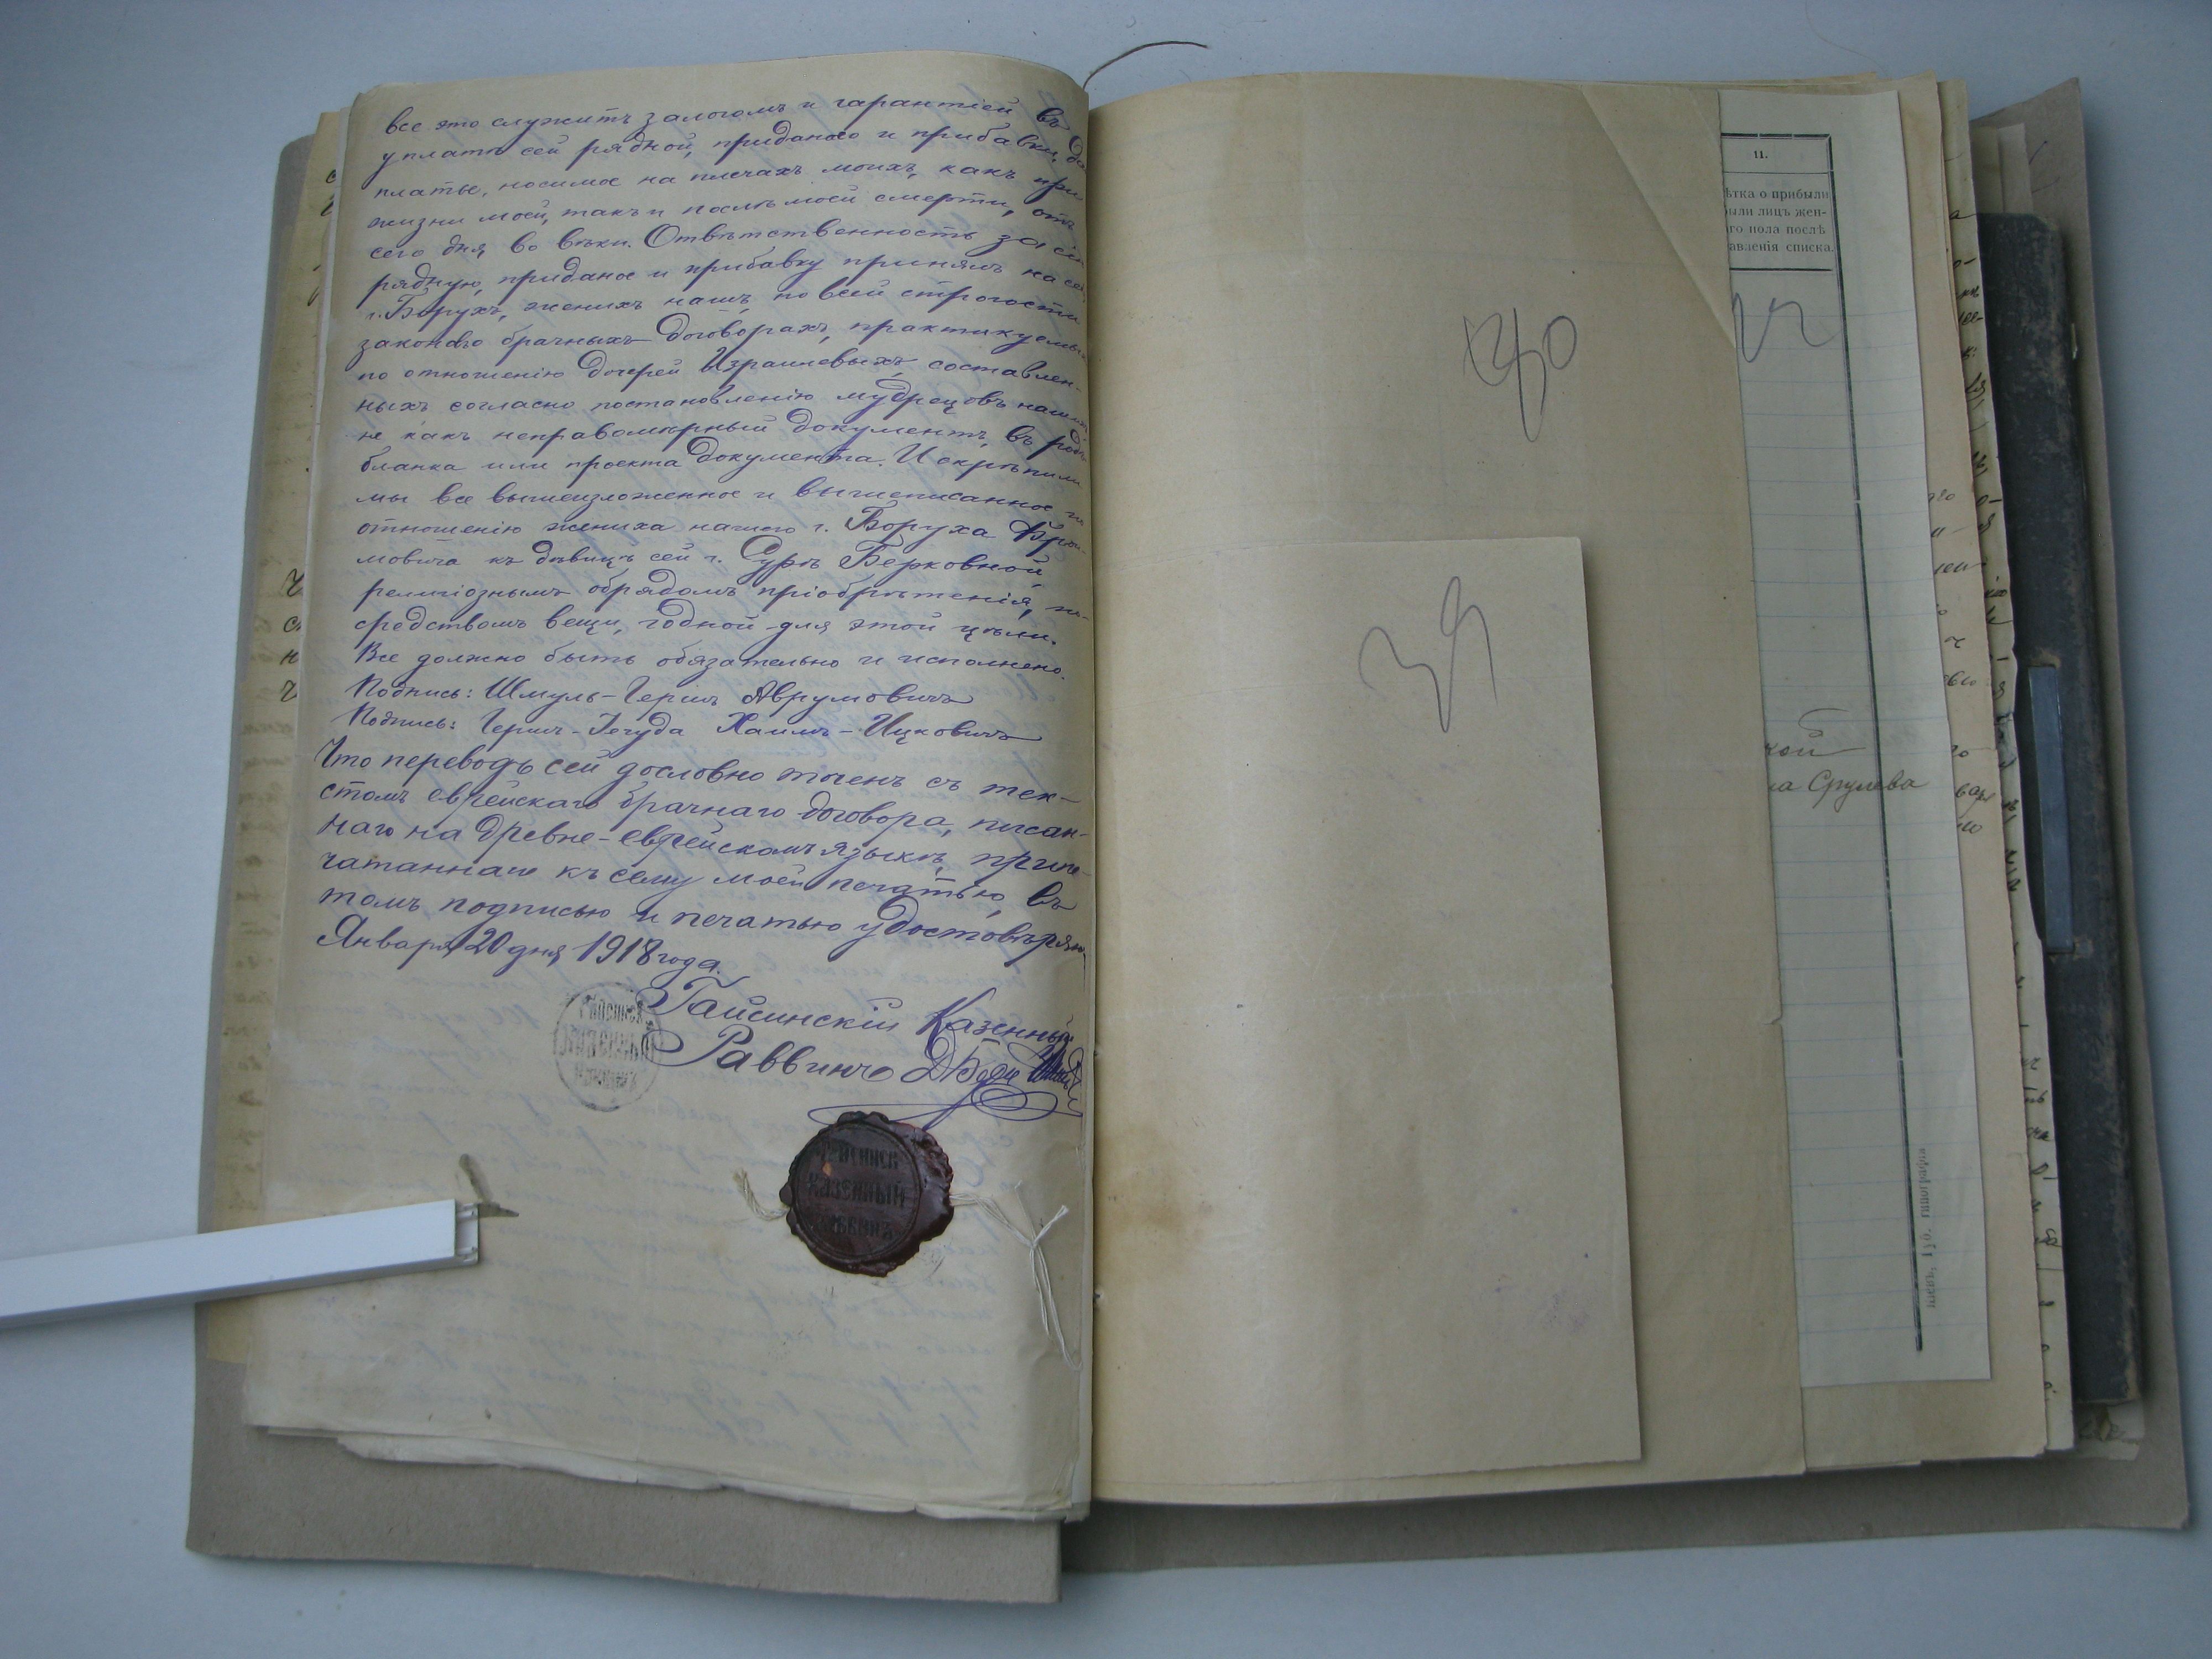 все это служитъ залогомъ и гарантіей въ
уплатѣ сей рядной, приданаго и прибавки, да
платье, носимое на плечахъ моихъ, какъ при
жизни моей, такъ и послѣ моей смерти, отъ
сего дня, во вѣки. Отвѣтственность за сію
рядную, приданое и прибавку принялъ на се
г. Борухъ, женихъ нашъ, по всей строгости
законаго брачныхъ договорахъ, практикуемы
по отношенію дочерей Израилевыхъ, составлен-
ныхъ согласно постановленію мудрецовъ нашихъ
не какъ неправомѣрный документъ, въ родѣ
бланка или проекта документа. И скрѣпили
мы все вышеизложенное и вышеписанное по
отношенію жениха нашего г. Боруха
мовича къ дѣвицѣ сей г. Сурѣ Берковной,
религіознымъ обрядомъ пріобрѣтенія, по-
средствомъ вещи, годной для этой цѣли.
Все должно быть обязательно и исполнено.
Подпись: Шмуль-Гершъ Аврумовичъ
Подпись: Гершъ-Іегуда Хаимъ-Ицковичъ
Что переводъ сей дословно точенъ съ тек-
стомъ еврейскаго брачнаго договора, писан-
наго на древне-еврейскомъ языкѣ, припе-
чатаннаго къ сему моей печатью, въ
томъ подписью и печатью удостовѣряю
Января 20 дня 1918 года.
Гайсинскій Казенный
Раввинъ
КАЗЕННЫЙ
40
39
11.
ѣтка о прибыли
были лицъ жен-
го пола послѣ
авленія списка.
кой
на Срулева
Кіевъ, Губ. типографія